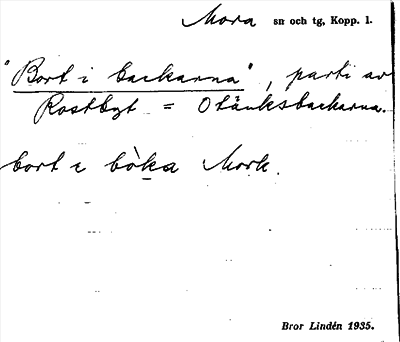 Mora sn och tg, Kopp. l.
"Bort i backarna", parti av
Rostbyt = Otänksbackarna.
bort i bö̀ka Mork.
Bror Lindén 1935.